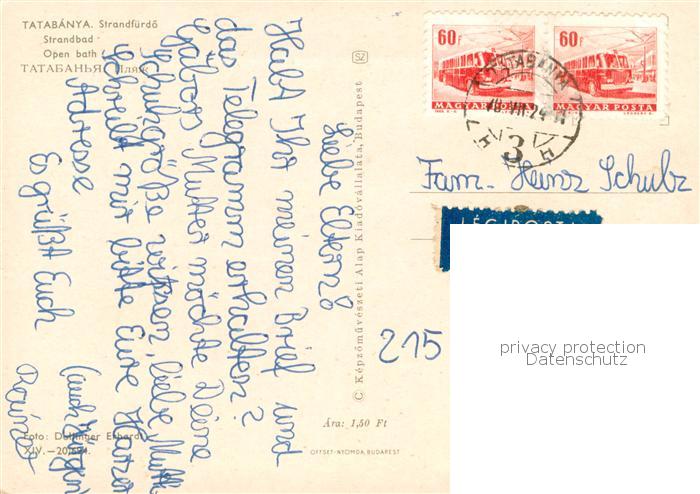 TATABÁNYA. Strandfürdő
Strandbad
Open bath
ТАТАБАНЬЯ Пляж
SZ
60f
60f
MAGYAR POSTA
MAGYAR POSTA
TATABÁNYA
3
Liebe Eltern!
Habt Ihr meinen Brief und
das Telegramm erhalten?
Gábors Mutter möchte Deine
Schuhgröße wissen, liebe Mutti
schreibt mir bitte Eure
Adresse
Es grüßt Euch
Fam. Heinz Schulz
LÉGIPOSTA
215
© Képzőművészeti Alap Kiadóvállalata, Budapest
Ára: 1,50 Ft
Foto: Erhard
XIV.—20/
OFFSET-NYOMDA, BUDAPEST
privacy protection
Datenschutz